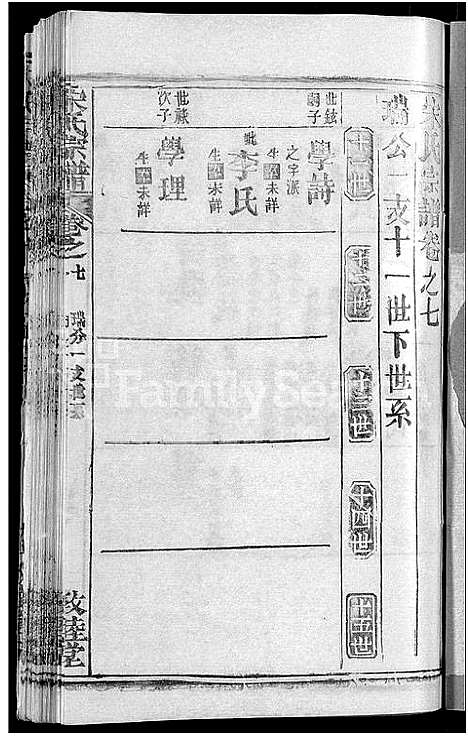 朱氏宗譜卷之七
瑞公一支十一世下世系
十一世
十二世
十三世
十四世
十五世
世鉉嗣子
學詩
之字派
生卒未詳
妣李氏
生卒未詳
世祿次子
學理
生卒未詳
朱氏宗譜
卷之七
瑞公一支
敦睦堂
FamilySearch